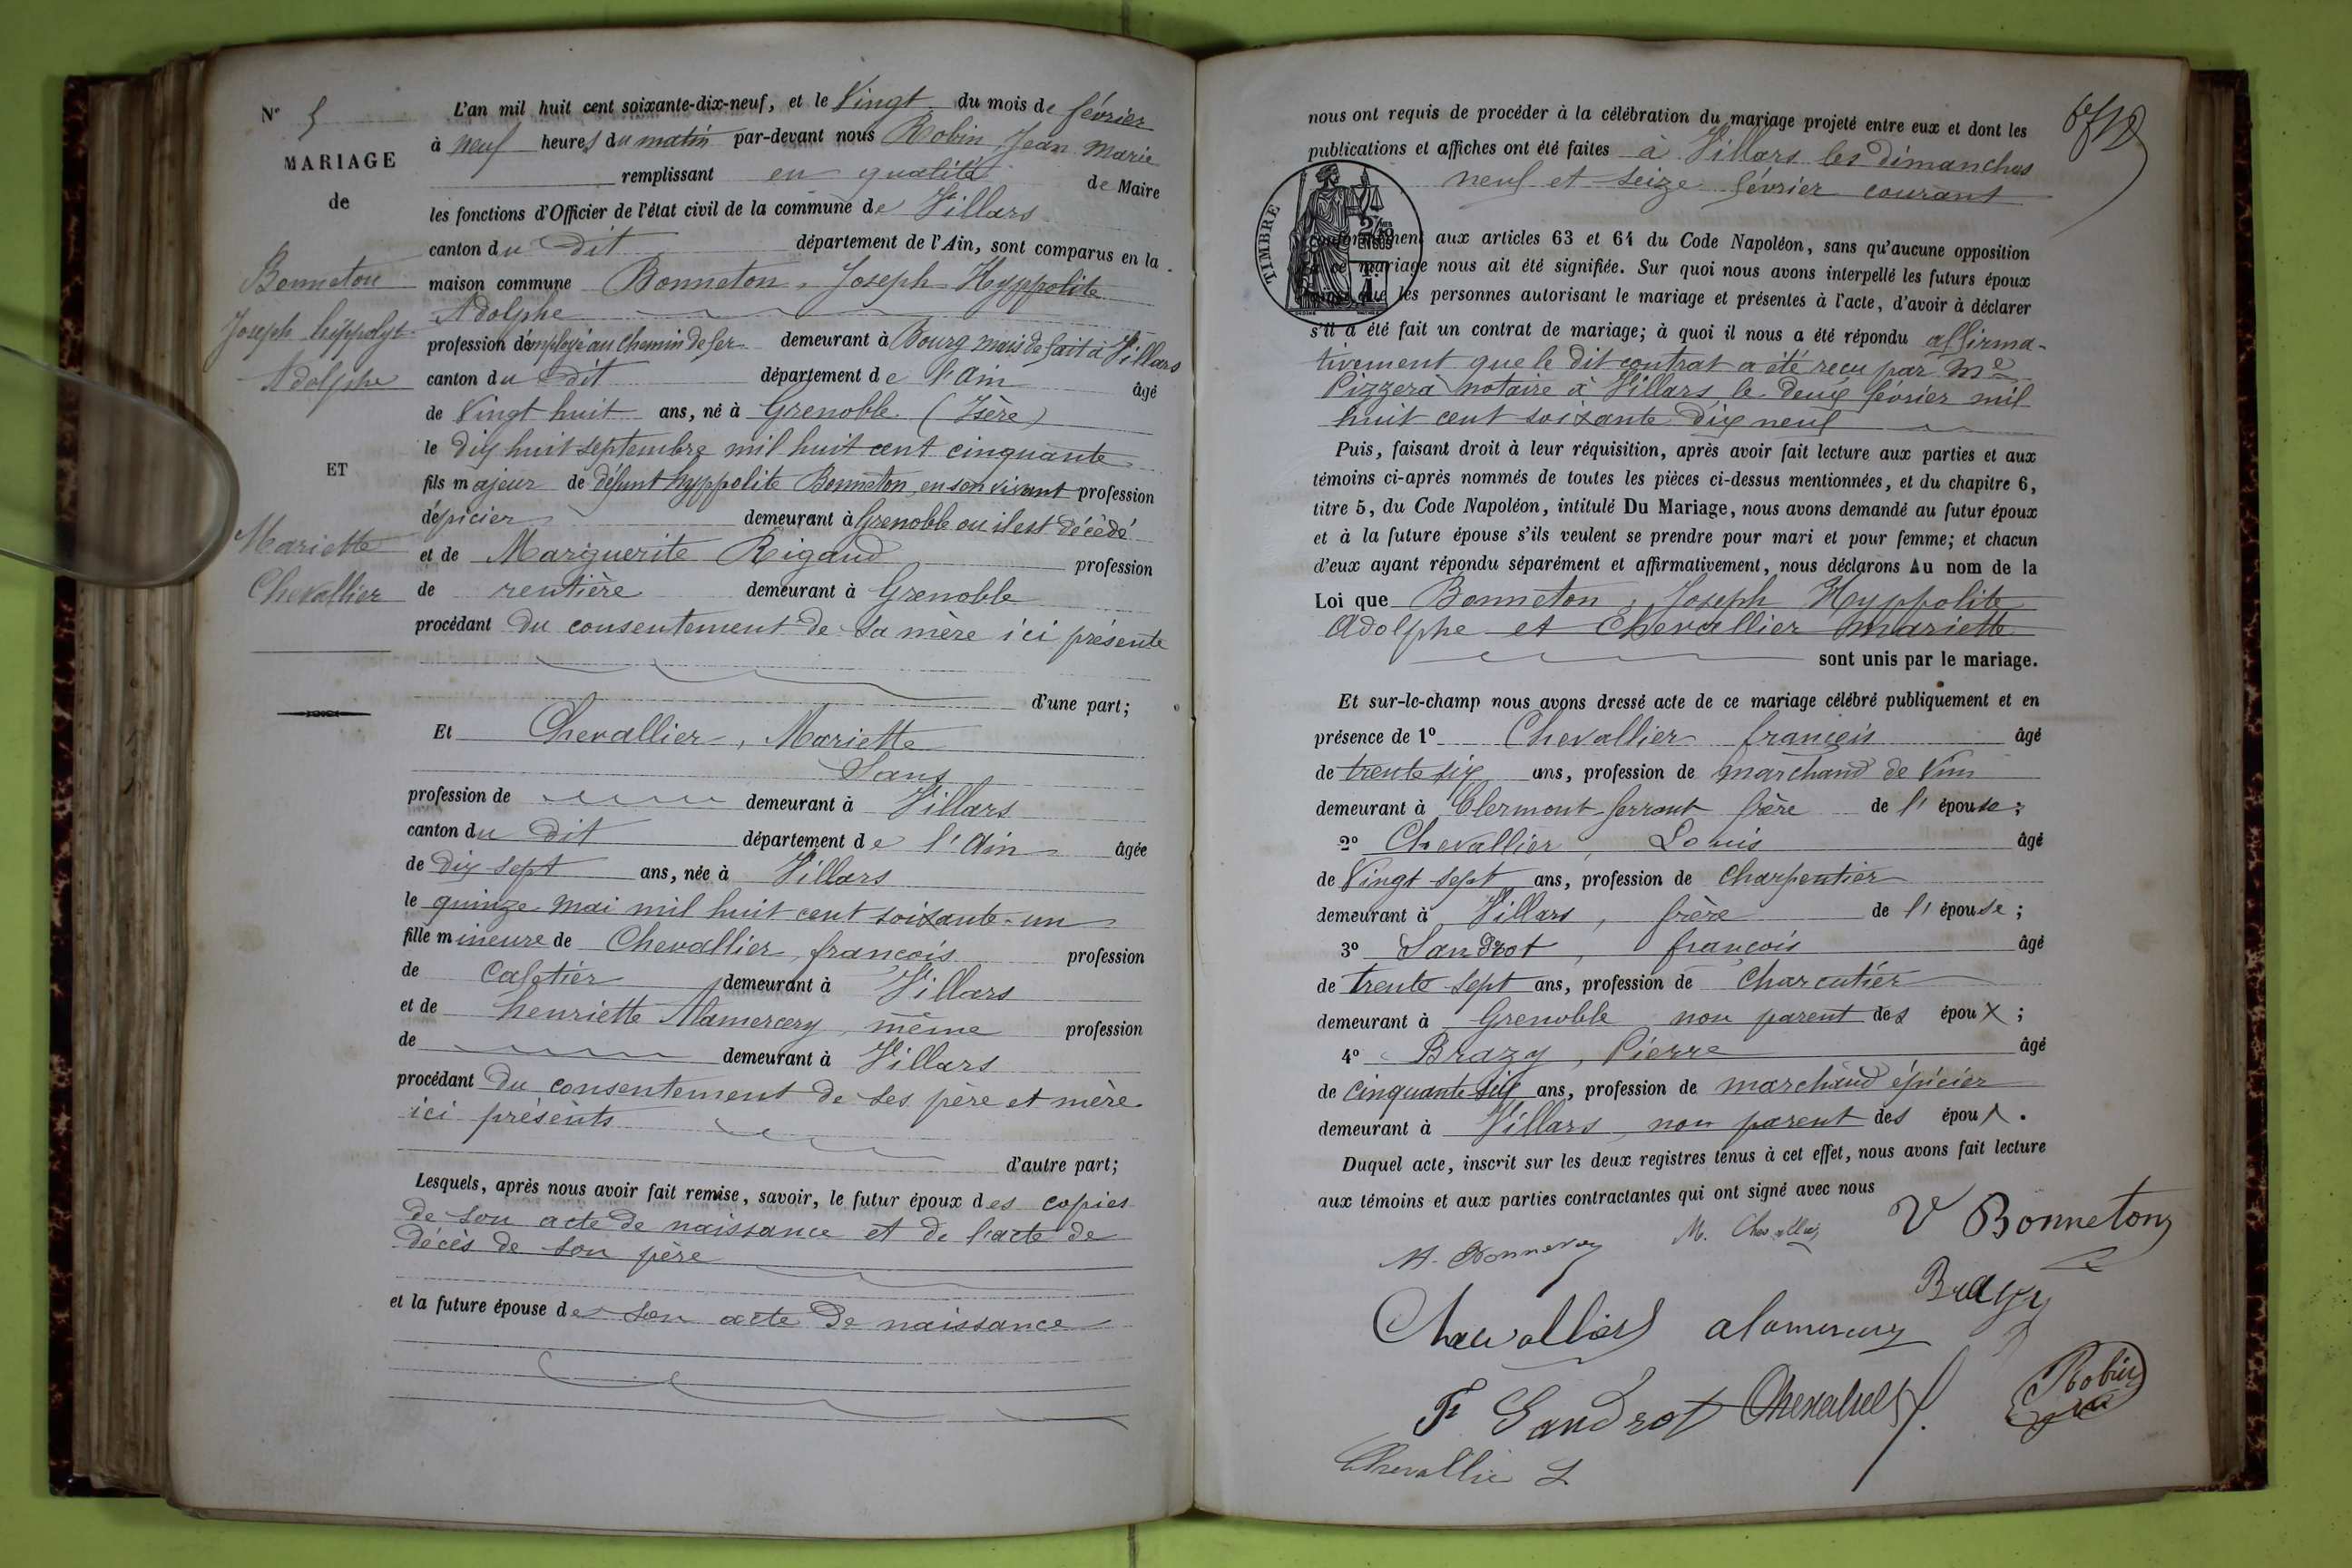 N° 5
MARIAGE
de
Bonneton
Joseph hippolyt
Adolphe
ET
Mariette
Chevallier
L'an mil huit cent soixante-dix-neuf, et le Vingt du mois de février
à neuf heures du matin par-devant nous Robin, Jean Marie
remplissant en qualité de Maire
les fonctions d'Officier de l'état civil de la commune de Villars
canton du dit département de l'Ain, sont comparus en la
maison commune Bonneton, Joseph Hyppolite
Adolphe
profession d'employé au chemin de fer demeurant à Bourg mais de fait à Villars
canton du dit département de l'Ain âgé
de Vingt huit ans, né à Grenoble (Isère)
le dix huit septembre mil huit cent cinquante
fils majeur de défunt hyppolite Bonneton, en son vivant profession
d'épicier demeurant à Grenoble ou il est décédé
et de Marguerite Rigaud profession
de rentière demeurant à Grenoble
procédant du consentement de sa mère ici présente
d'une part;
Et Chevallier, Mariette
Sans
profession de demeurant à Villars
canton du dit département de l'Ain âgée
de dix sept ans, née à Villars
le quinze mai mil huit cent soixante-un
fille mineure de Chevallier, françois profession
de cafetier demeurant à Villars
et de henriette Alamercery, même profession
de demeurant à Villars
procédant du consentement de ses père et mère
ici présents
d'autre part;
Lesquels, après nous avoir fait remise, savoir, le futur époux des copies
de son acte de naissance et de l'acte de
décès de son père
et la future épouse de son acte de naissance
nous ont requis de procéder à la célébration du mariage projeté entre eux et dont les
publications et affiches ont été faites à Villars les dimanches
neuf et seize février courant
TIMBRE
conformément aux articles 63 et 64 du Code Napoléon, sans qu'aucune opposition
à ce mariage nous ait été signifiée. Sur quoi nous avons interpellé les futurs époux
ainsi que les personnes autorisant le mariage et présentes à l'acte, d'avoir à déclarer
s'il a été fait un contrat de mariage; à quoi il nous a été répondu affirma-
tivement que le dit contrat a été reçu par Me
Pizzera notaire à Villars, le deux février mil
huit cent soixante dix neuf
Puis, faisant droit à leur réquisition, après avoir fait lecture aux parties et aux
témoins ci-après nommés de toutes les pièces ci-dessus mentionnées, et du chapitre 6,
titre 5, du Code Napoléon, intitulé Du Mariage, nous avons demandé au futur époux
et à la future épouse s'ils veulent se prendre pour mari et pour femme; et chacun
d'eux ayant répondu séparément et affirmativement, nous déclarons Au nom de la
Loi que Bonneton, Joseph Hyppolite
Adolphe et Chevallier Mariette
sont unis par le mariage.
Et sur-le-champ nous avons dressé acte de ce mariage célébré publiquement et en
présence de 1° Chevallier françois âgé
de trente six ans, profession de marchand de Vins
demeurant à Clermont ferrant frère de l'épouse;
2° Chevallier, Louis âgé
de Vingt sept ans, profession de Charpentier
demeurant à Villars, frère de l'épouse;
3° Sandrot, françois âgé
de trente sept ans, profession de Charcutier
demeurant à Grenoble non parent des époux;
4° Brazy, Pierre âgé
de cinquante six ans, profession de marchand épicier
demeurant à Villars, non parent des époux.
Duquel acte, inscrit sur les deux registres tenus à cet effet, nous avons fait lecture
aux témoins et aux parties contractantes qui ont signé avec nous
M. Chevallier V Bonneton
Brazy
Chevallier alamercery
Fs Sandrot Chevallier f. Robin
Chevallie L